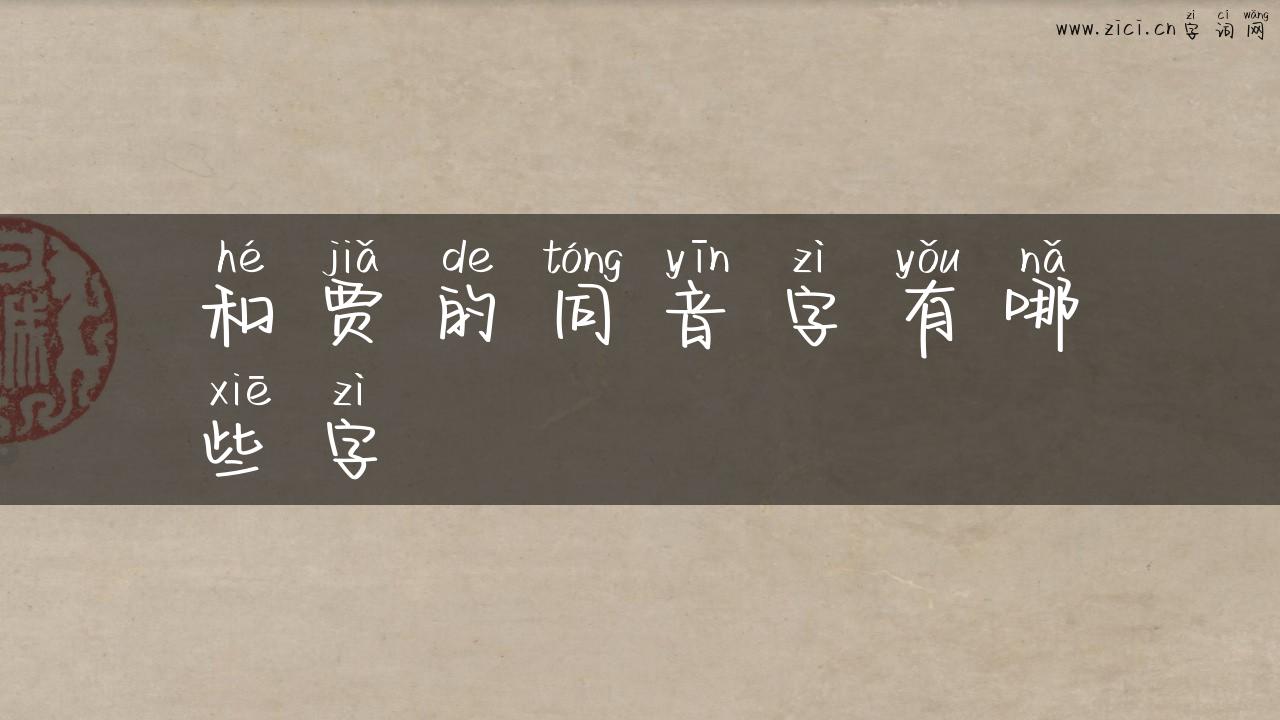 zì cí wǎng
www.zici.cn 字词网
hé jiǎ de tóng yīn zì yǒu nǎ
和贾的同音字有哪
xiē zì
些字